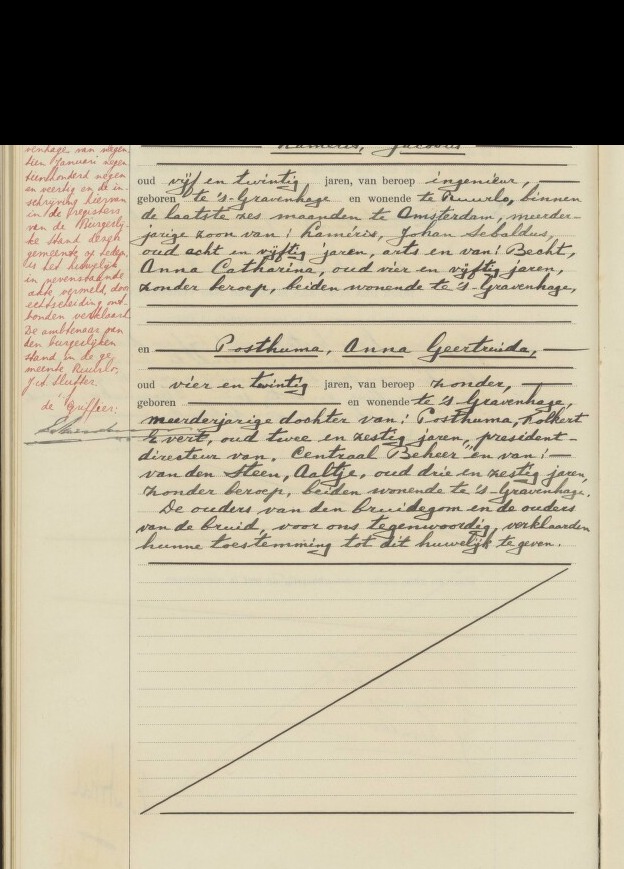 Kameris, Jacobus
oud vijf en twintig jaren, van beroep ingenieur,
geboren te 's-Gravenhage en wonende te Ruurlo, binnen
de laatste zes maanden te Amsterdam, meerder-
jarige zoon van: Kaméris, Johan Sebaldus,
oud acht en vijftig jaren, arts en van: Becht,
Anna Catharina, oud vier en vijftig jaren,
zonder beroep, beiden wonende te 's-Gravenhage,
en Posthuma, Anna Geertruida,
oud vier en twintig jaren, van beroep zonder,
geboren en wonende te 's-Gravenhage,
meerderjarige dochter van: Posthuma, Folkert
Evert, oud twee en zestig jaren, president-
directeur van, Centraal Beheer en van:
van den Steen, Aaltje, oud drie en zestig jaren,
zonder beroep, beiden wonende te 's-Gravenhage.
De ouders van den bruidegom en de ouders
van de bruid, voor ons tegenwoordig, verklaarden
hunne toestemming tot dit huwelijk te geven.
venhage van negen
tien Januari negen
tienhonderd negen
en veertig en de in-
schrijving hiervan
in de registers
van de Burgerlij-
ke Stand dezer
gemeente op heden,
is het huwelijk
in nevenstaande
akte vermeld, door
echtscheiding ont-
bonden verklaard
De ambtenaar van
den burgerlijken
stand in de ge-
meente Ruurlo,
de Griffier: